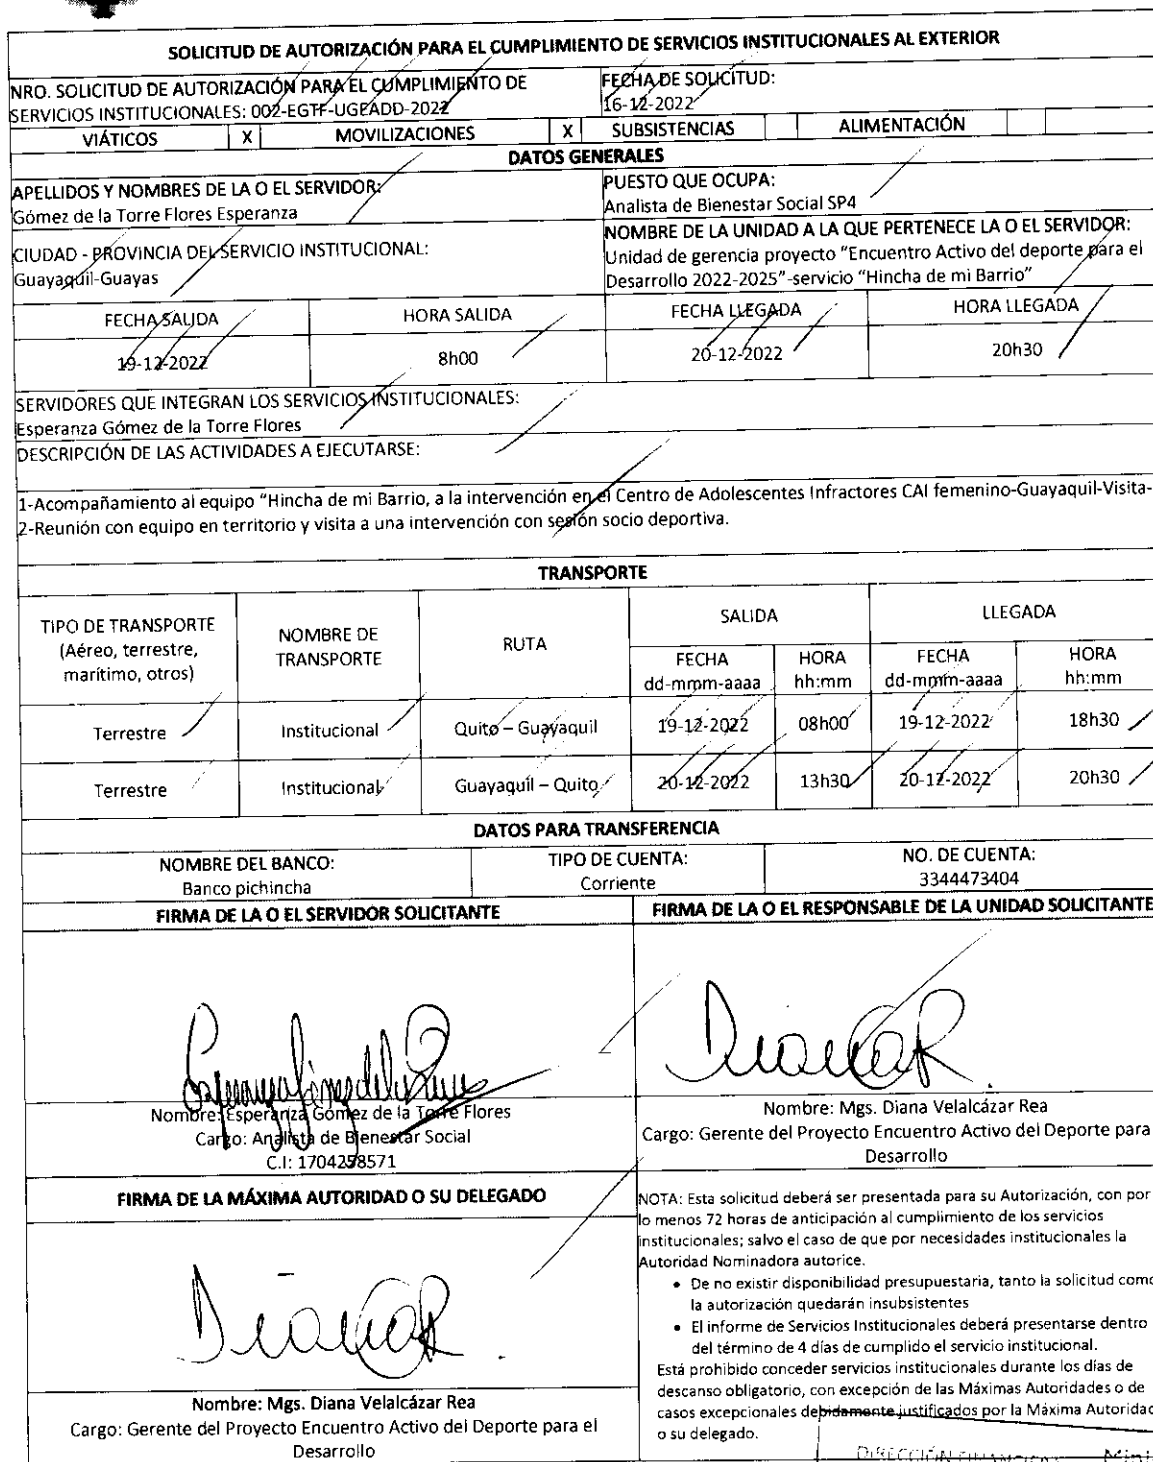 SOLICITUD DE AUTORIZACIÓN PARA EL CUMPLIMIENTO DE SERVICIOS INSTITUCIONALES AL EXTERIOR
NRO. SOLICITUD DE AUTORIZACIÓN PARA EL CUMPLIMIENTO DE
SERVICIOS INSTITUCIONALES: 002-EGTF-UGEADD-2022
FECHA DE SOLICITUD:
16-12-2022
VIÁTICOS X MOVILIZACIONES X SUBSISTENCIAS ALIMENTACIÓN
DATOS GENERALES
APELLIDOS Y NOMBRES DE LA O EL SERVIDOR:
Gómez de la Torre Flores Esperanza
PUESTO QUE OCUPA:
Analista de Bienestar Social SP4
CIUDAD - PROVINCIA DEL SERVICIO INSTITUCIONAL:
Guayaquil-Guayas
NOMBRE DE LA UNIDAD A LA QUE PERTENECE LA O EL SERVIDOR:
Unidad de gerencia proyecto "Encuentro Activo del deporte para el
Desarrollo 2022-2025"-servicio "Hincha de mi Barrio"
FECHA SALIDA HORA SALIDA FECHA LLEGADA HORA LLEGADA
19-12-2022 8h00 20-12-2022 20h30
SERVIDORES QUE INTEGRAN LOS SERVICIOS INSTITUCIONALES:
Esperanza Gómez de la Torre Flores
DESCRIPCIÓN DE LAS ACTIVIDADES A EJECUTARSE:
1-Acompañamiento al equipo "Hincha de mi Barrio, a la intervención en el Centro de Adolescentes Infractores CAI femenino-Guayaquil-Visita-
2-Reunión con equipo en territorio y visita a una intervención con sesión socio deportiva.
TRANSPORTE
TIPO DE TRANSPORTE
(Aéreo, terrestre,
marítimo, otros)
NOMBRE DE
TRANSPORTE
RUTA
SALIDA LLEGADA
FECHA
dd-mmm-aaaa
HORA
hh:mm
FECHA
dd-mmm-aaaa
HORA
hh:mm
Terrestre Institucional Quito – Guayaquil 19-12-2022 08h00 19-12-2022 18h30
Terrestre Institucional Guayaquil – Quito 20-12-2022 13h30 20-12-2022 20h30
DATOS PARA TRANSFERENCIA
NOMBRE DEL BANCO:
Banco pichincha
TIPO DE CUENTA:
Corriente
NO. DE CUENTA:
3344473404
FIRMA DE LA O EL SERVIDOR SOLICITANTE
FIRMA DE LA O EL RESPONSABLE DE LA UNIDAD SOLICITANTE
Nombre: Esperanza Gómez de la Torre Flores
Cargo: Analista de Bienestar Social
C.I: 1704258571
Nombre: Mgs. Diana Velalcázar Rea
Cargo: Gerente del Proyecto Encuentro Activo del Deporte para
Desarrollo
FIRMA DE LA MÁXIMA AUTORIDAD O SU DELEGADO
Nombre: Mgs. Diana Velalcázar Rea
Cargo: Gerente del Proyecto Encuentro Activo del Deporte para el
Desarrollo
NOTA: Esta solicitud deberá ser presentada para su Autorización, con por
lo menos 72 horas de anticipación al cumplimiento de los servicios
institucionales; salvo el caso de que por necesidades institucionales la
Autoridad Nominadora autorice.
• De no existir disponibilidad presupuestaria, tanto la solicitud como
la autorización quedarán insubsistentes
• El informe de Servicios Institucionales deberá presentarse dentro
del término de 4 días de cumplido el servicio institucional.
Está prohibido conceder servicios institucionales durante los días de
descanso obligatorio, con excepción de las Máximas Autoridades o de
casos excepcionales debidamente justificados por la Máxima Autoridad
o su delegado.
DIRECCIÓN